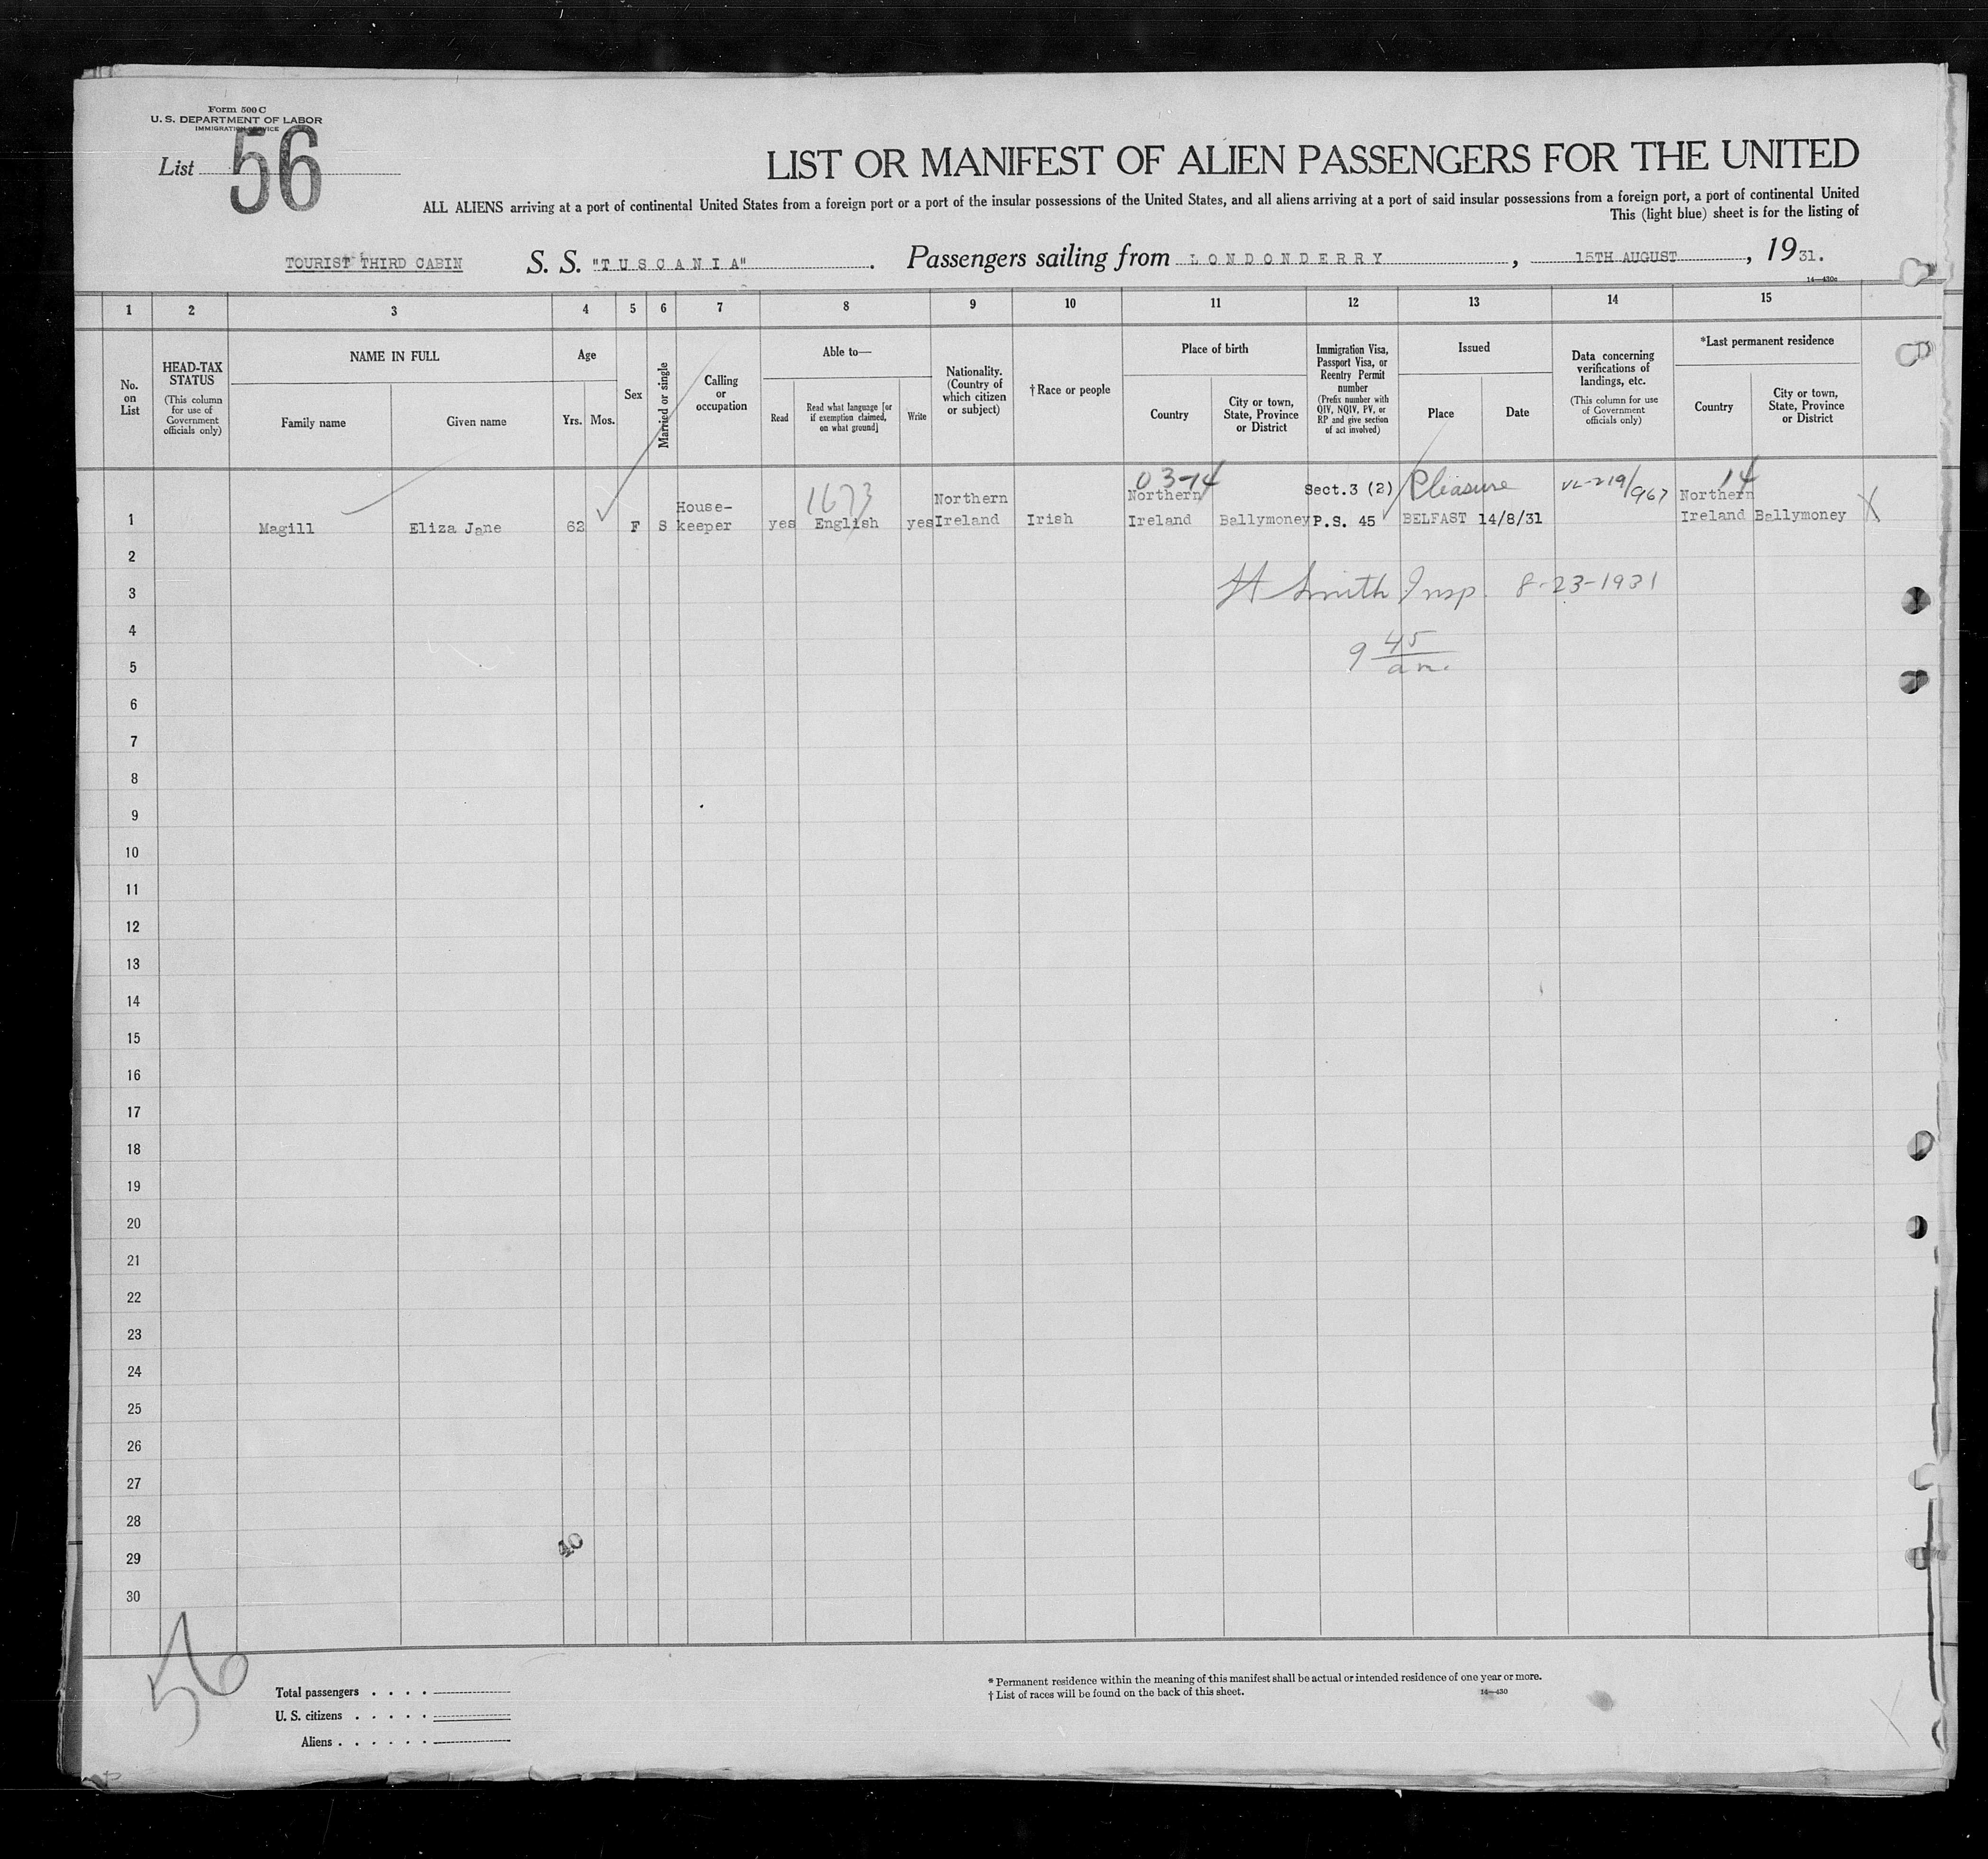 Form 500 C
U. S. DEPARTMENT OF LABOR
IMMIGRATION SERVICE
List 56
LIST OR MANIFEST OF ALIEN PASSENGERS FOR THE UNITED
ALL ALIENS arriving at a port of continental United States from a foreign port or a port of the insular possessions of the United States, and all aliens arriving at a port of said insular possessions from a foreign port, a port of continental United
This (light blue) sheet is for the listing of
TOURIST THIRD CABIN S. S. "TUSCANIA" . Passengers sailing from LONDONDERRY , 15TH AUGUST , 1931.
14—430c
1 2 3 4 5 6 7 8 9 10 11 12 13 14 15
No. on List
HEAD-TAX STATUS
(This column for use of Government officials only)
NAME IN FULL
Family name
Given name
Age
Yrs.
Mos.
Sex
Married or single
Calling or occupation
Able to—
Read
Read what language [or if exemption claimed, on what ground]
Write
Nationality. (Country of which citizen or subject)
†Race or people
Place of birth
Country
City or town, State, Province or District
Immigration Visa, Passport Visa, or Reentry Permit number
(Prefix number with QIV, NQIV, PV, or RP and give section of act involved)
Issued
Place
Date
Data concerning verifications of landings, etc.
(This column for use of Government officials only)
*Last permanent residence
Country
City or town, State, Province or District
03-14 14
1673 Northern Northern Sect.3 (2) Pleasure VL-219/967 Northern
House-
1 Magill Eliza Jane 62 F S keeper yes English yes Ireland Irish Ireland Ballymoney P.S. 45 BELFAST 14/8/31 Ireland Ballymoney X
2
3 Smith Insp. 8-23-1931
4
9 45/am.
5
6
7
8
9
10
11
12
13
14
15
16
17
18
19
20
21
22
23
24
25
26
27
28
40
29
30
56
Total passengers . . . .
U. S. citizens . . . . .
Aliens . . . . . .
* Permanent residence within the meaning of this manifest shall be actual or intended residence of one year or more.
† List of races will be found on the back of this sheet.
14—430